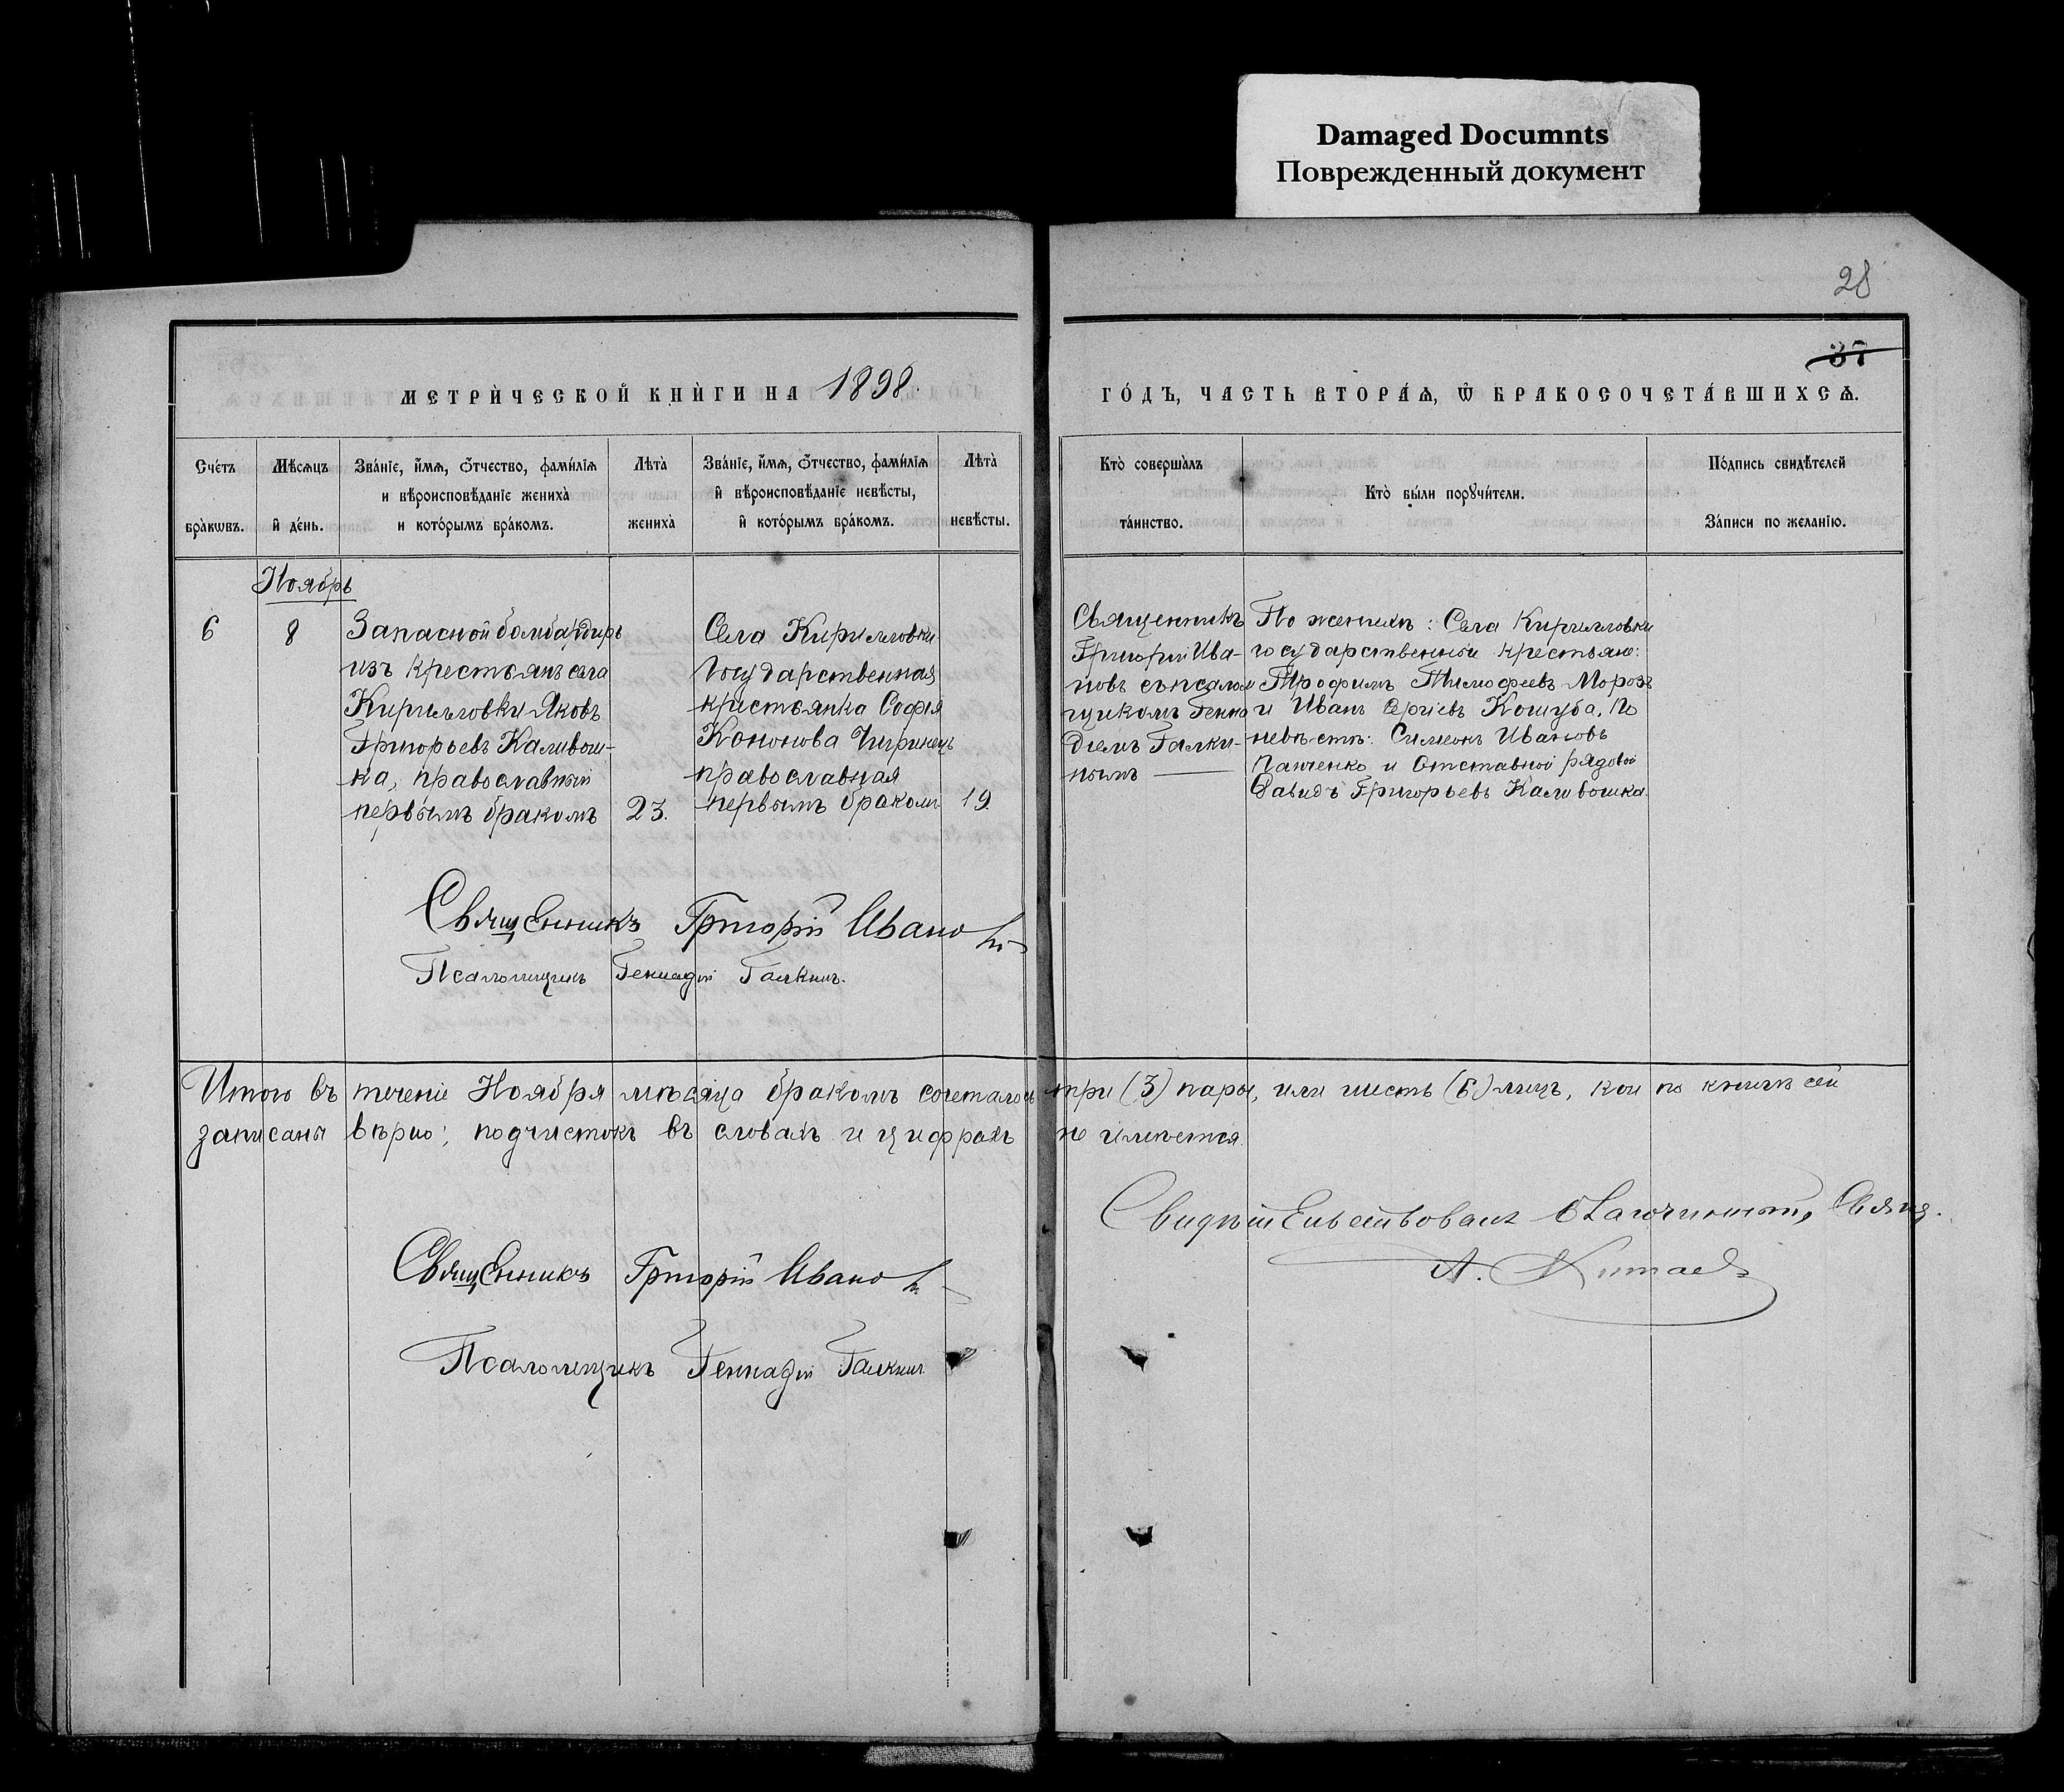 Damaged Documnts
Поврежденный документ
28
37
МЕТРИ́ЧЕСКОЙ КНИ́ГИ НА 1898.
ГО́ДЪ, ЧАСТЬ ВТОРА́Ѧ, Ѿ БРАКОСОЧЕТА́ВШИХСѦ.
Сче́тъ бра́кѡвъ.
Мѣ́сѧцъ и҆ де́нь.
Зва́нїе, и҆́мѧ, ѻ҆́тчество, фами́лїѧ
и вѣроисповѣ́данїе жениха̀
и кото́рымъ бра́комъ.
Лѣта̀ жениха̀
Зва́нїе, и҆́мѧ, ѻ҆́тчество, фами́лїѧ
и҆ вѣроисповѣ́данїе невѣ́сты,
и҆ кото́рымъ бра́комъ.
Лѣта̀ невѣ́сты.
Кто̀ соверша̀лъ та́инство.
Кто̀ бы́ли порꙋчи́тели.
По́дпись свидѣ́телей
За́писи по жела́нїю.
Ноябрь
6
8
Запасной бомбардиръ
изъ крестьянъ села
Кирилловки Яковъ
Григорьевъ Каливош-
ка, православный
первымъ бракомъ
23.
Села Кирилловки
Государственная
крестьянка Софья
Кононова Чиринецъ
православная
первымъ бракомъ
19.
Священникъ
Григорій Ива-
новъ съ псалом
щикомъ Генна
діемъ Галки-
нымъ —
По женихѣ: Села Кирилловки
государственные крестьяне:
Трофимъ Тимофеевъ Морозъ
и Иванъ Сергіевъ Кошуба. По
невѣстѣ: Симеонъ Ивановъ
Панченко и Отставной рядовой
Давидъ Григорьевъ Каливошка.
Священникъ Григорій Ивановъ
Псаломщикъ Геннадій Галкинъ.
Итого въ теченіе Ноября мѣсяца бракомъ сочеталось три (3) пары, или шесть (6) лицъ, кои по книгѣ сей
записаны вѣрно; подчистокъ въ словахъ и цифрахъ не имѣется.
Свидѣтельствовалъ благочинный, Свящ.
А. Китаевъ
Священникъ Григорій Ивановъ
Псаломщикъ Геннадій Галкинъ